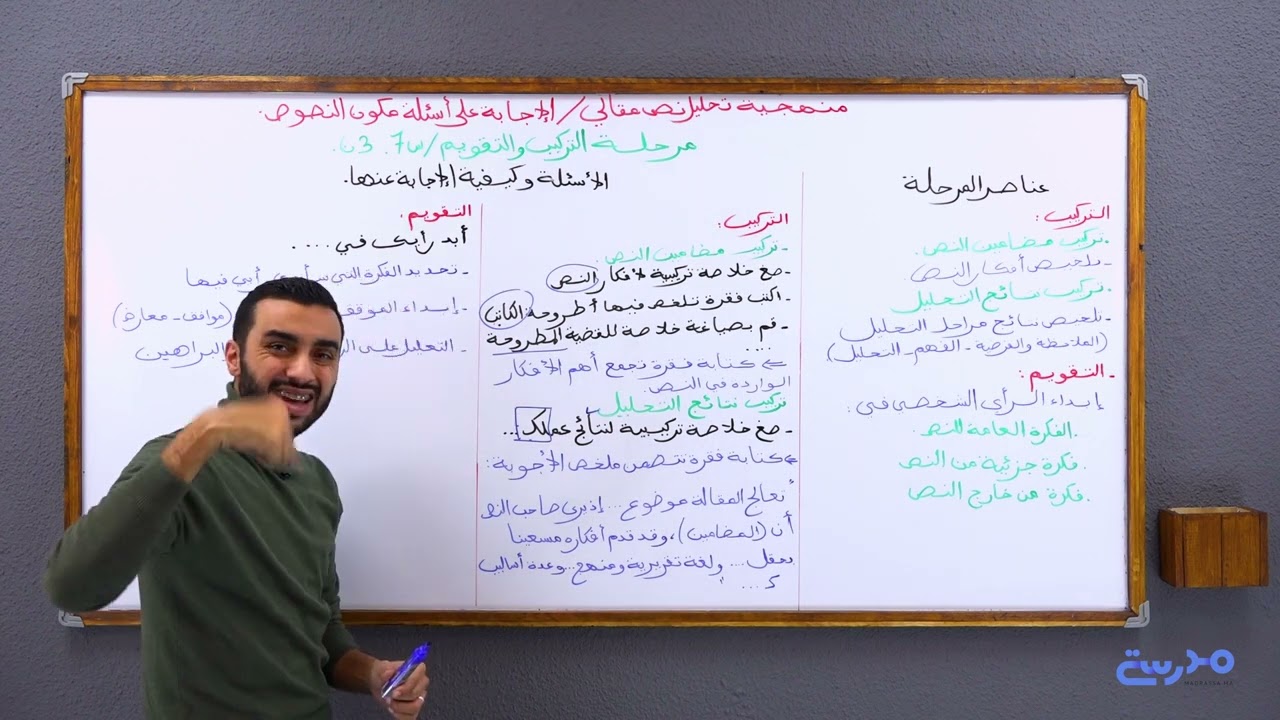 منهجية تحليل نص مقالي / الإجابة على أسئلة مكون النصوص.
مرحلة التركيب والتقويم / س7. 3ن.
عناصر المرحلة
التركيب:
. تركيب مضامين النص.
- تلخيص أفكار النص
. تركيب نتائج التحليل
- تلخيص نتائج مراحل التحليل
(الملاحظة والفرضية - الفهم - التحليل)
- التقويم:
إبداء الرأي الشخصي في:
. الفكرة العامة للنص
. فكرة جزئية من النص
. فكرة من خارج النص
الأسئلة وكيفية الإجابة عنها.
التركيب:
- تركيب مضامين النص.
- صغ خلاصة تركيبية لأفكار النص
- اكتب فقرة تلخص فيها أطروحة الكاتب
- قم بصياغة خلاصة للقضية المطروحة
....
⇐ كتابة فقرة تجمع أهم الأفكار
الواردة في النص.
تركيب نتائج التحليل
- صغ خلاصة تركيبية لنتائج عملك...
⇐ كتابة فقرة تتضمن ملخص الأجوبة:
" تعالج المقالة موضوع... إذ يرى صاحب النص
أن (المضامين)، وقد قدم أفكاره مستعينا
بحقل ... ولغة تقريرية ومنهج... وعدة أساليب
ك ... "
التقويم.
أبد رأيك في ....
- تحديد الفكرة التي سأبدي رأيي فيها
- إبداء الموقف (مواقف - معارض)
- التعليل على البراهين
مدرسة
MADRASSA.MA